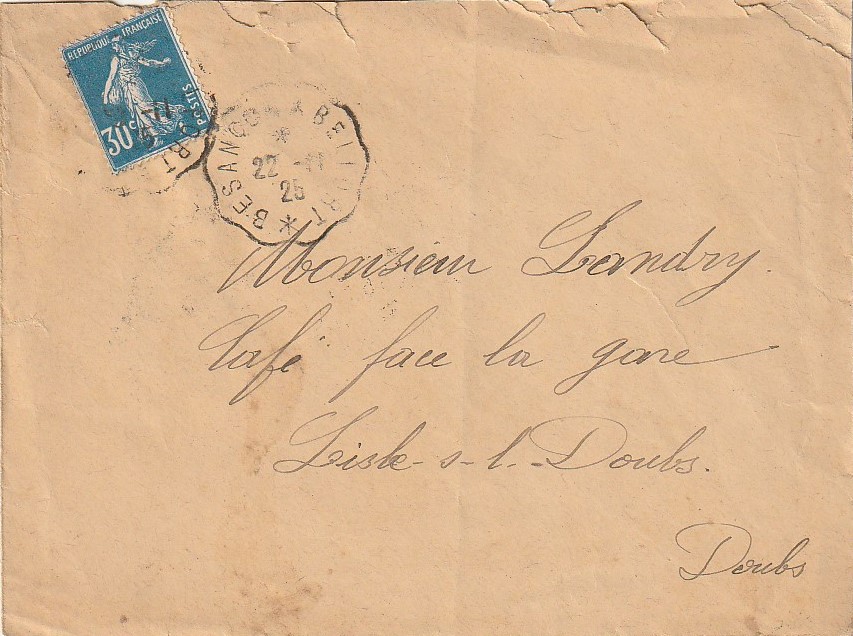 REPUBLIQUE FRANÇAISE
POSTES
30c
BESANÇON A BELFORT
22 -11
25
Monsieur Landry.
Café face la gare
Lisle-s-l.-Doubs.
Doubs